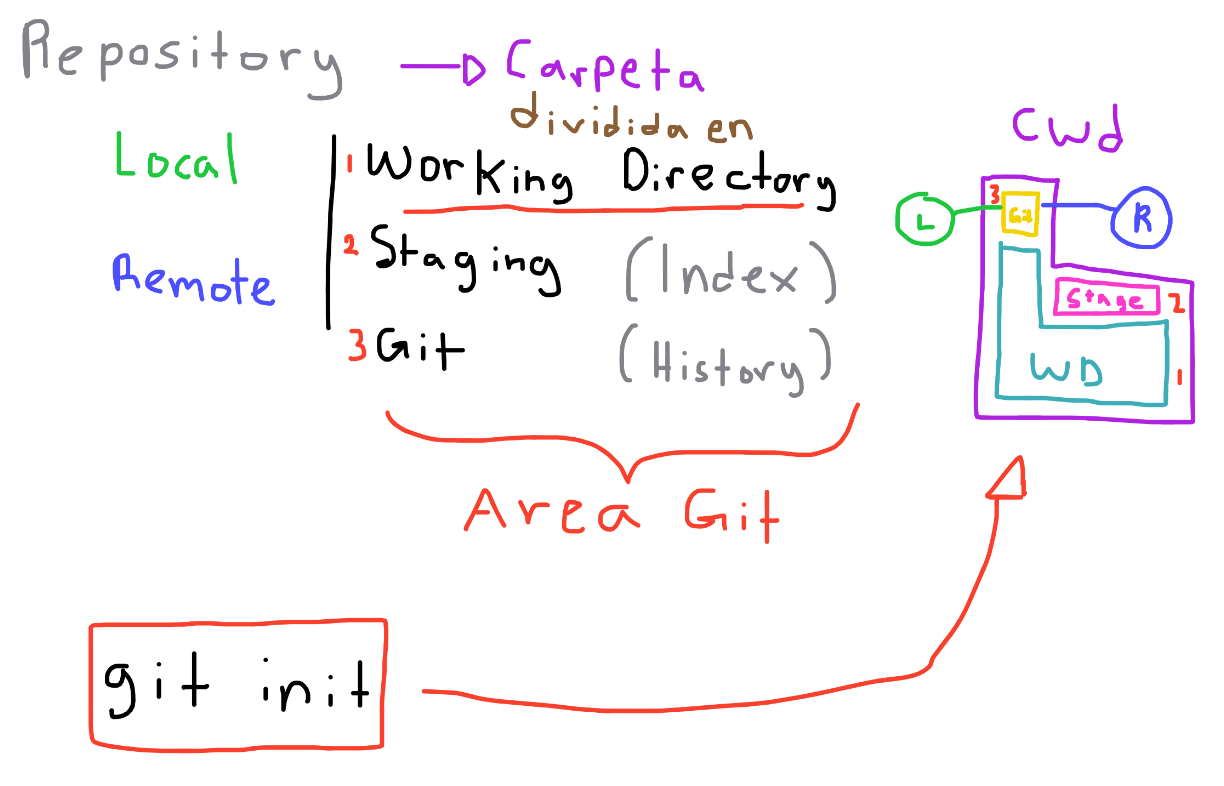 Repository
Carpeta
dividida en
Local
Remote
1 Working Directory
2 Staging (Index)
3 Git (History)
Area Git
cwd
3 Git
L
R
Stage 2
WD 1
git init